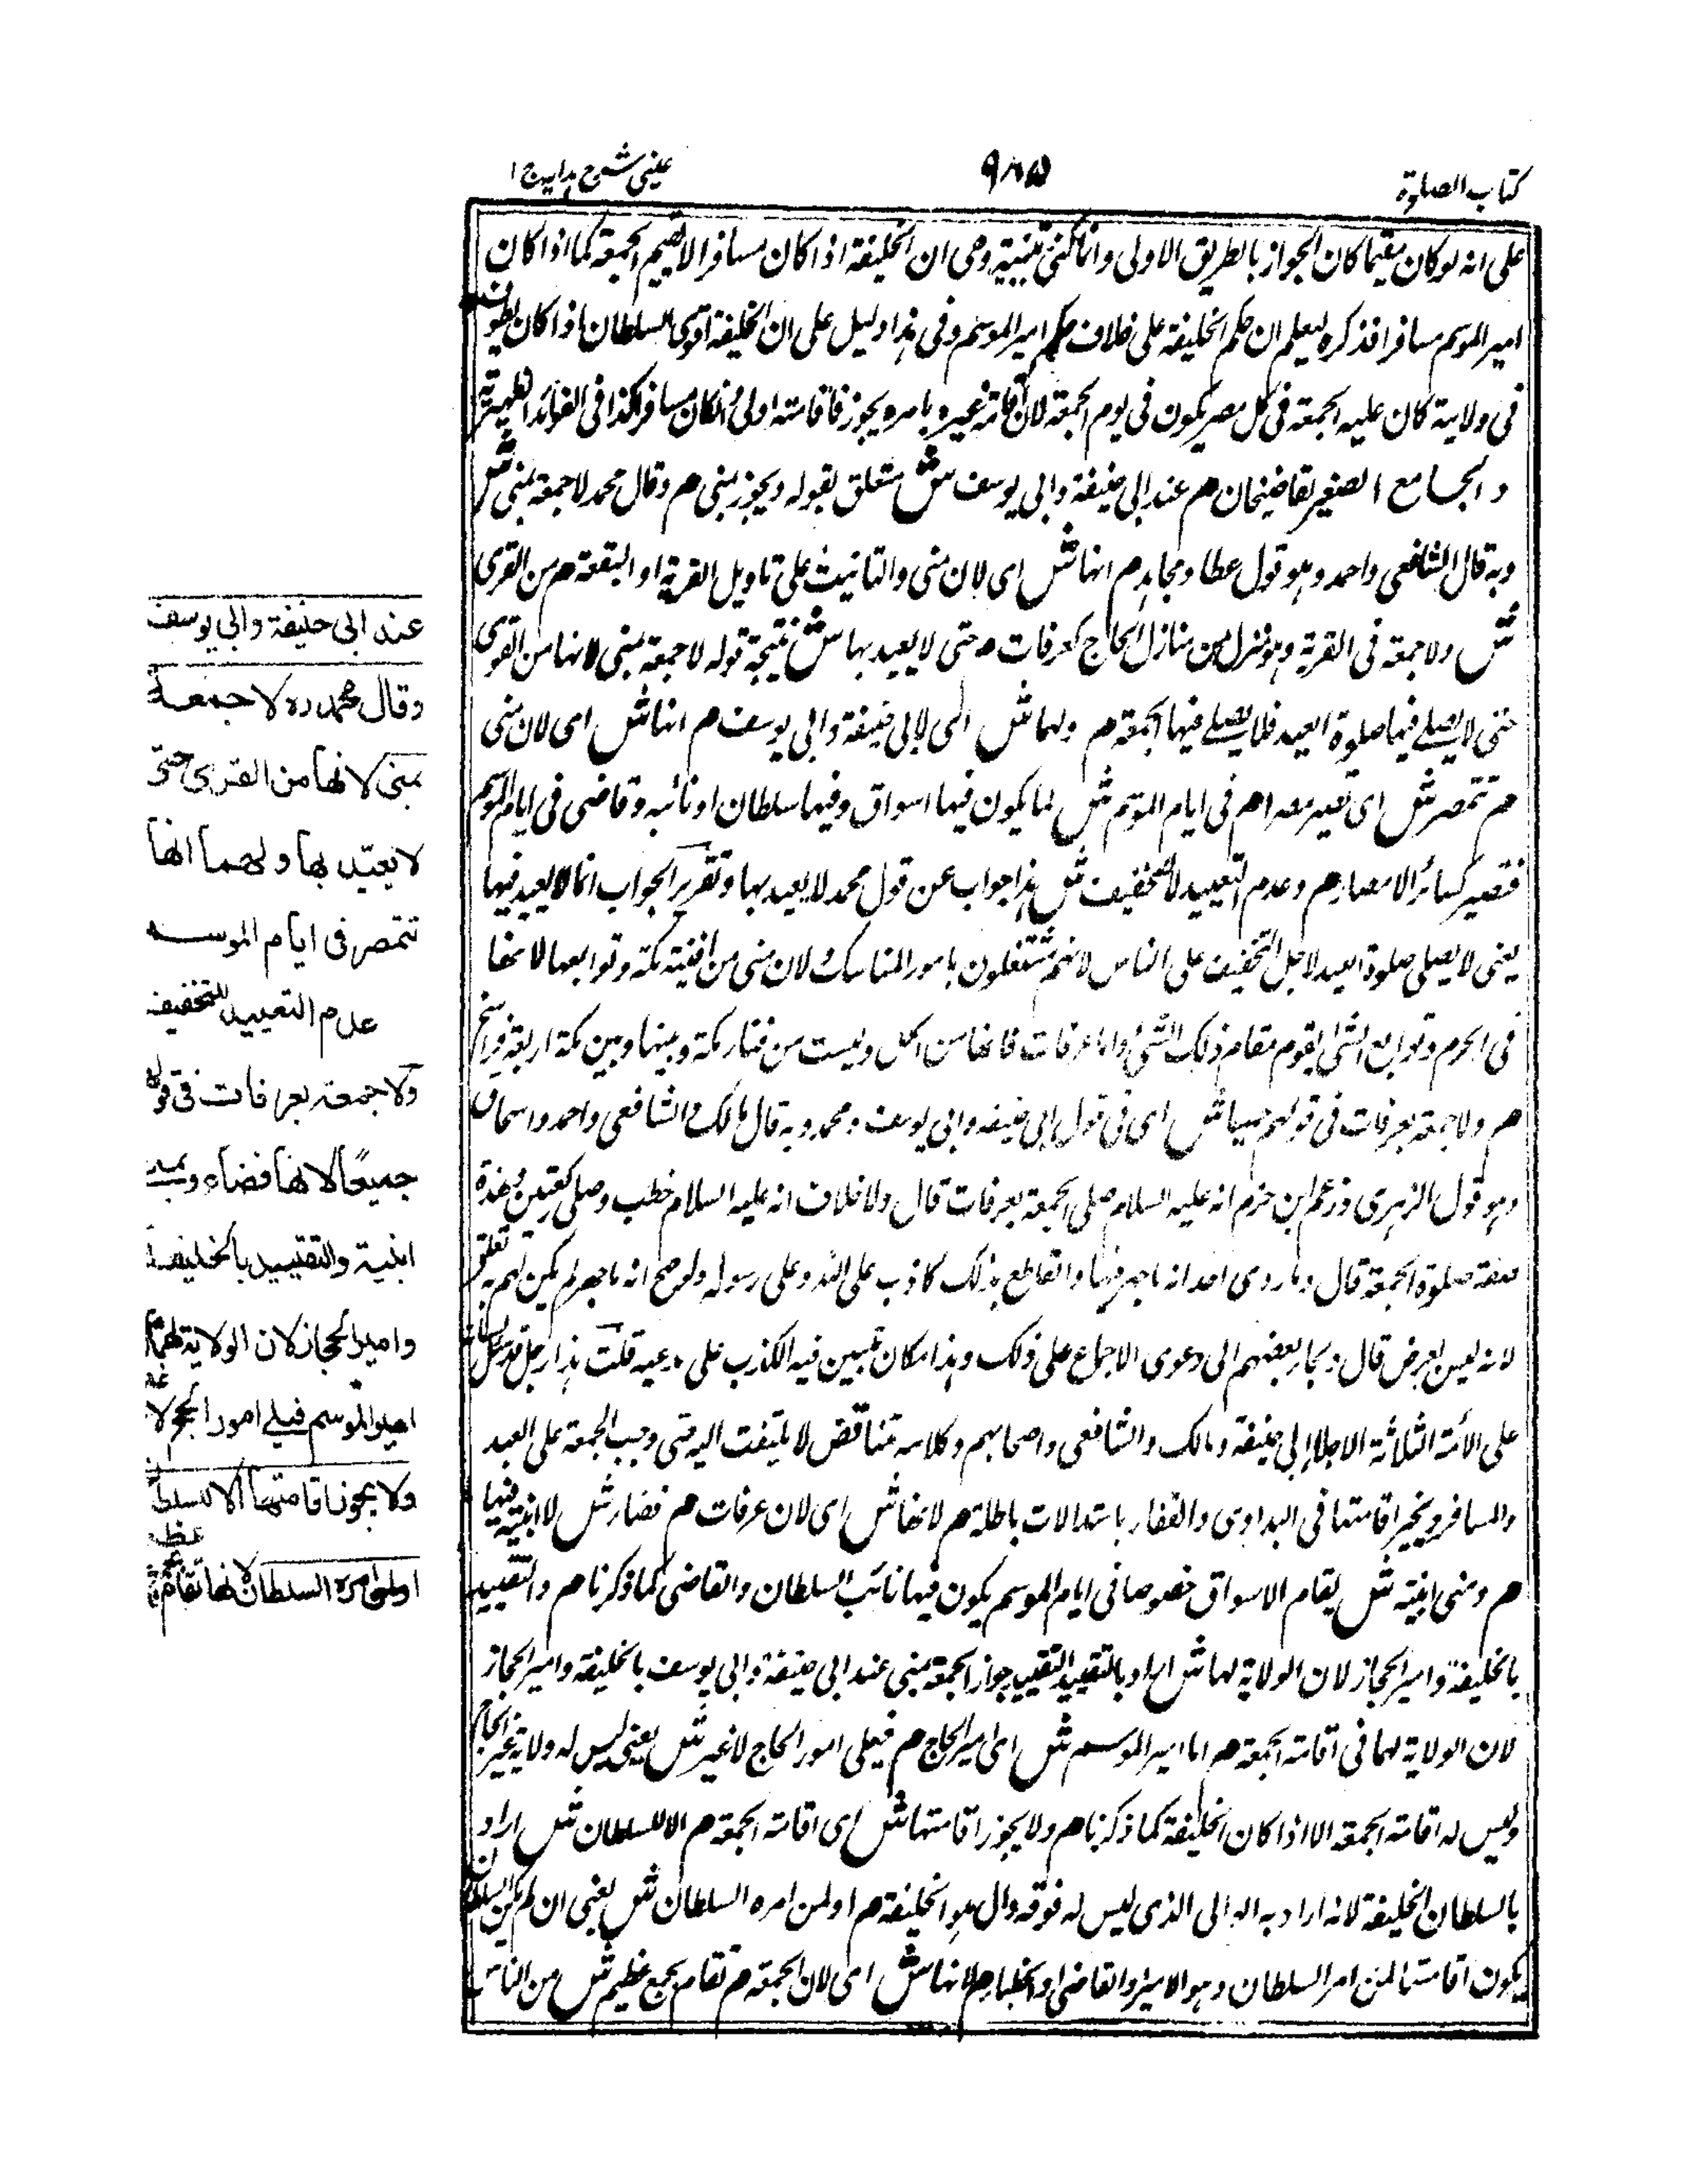 كتاب الصلوة
٩٨٥
عينى شرح هدايه ج ١
على انه لو كان مقيما كان الجواز بالطريق الاولى وانما تنبيه وهى ان الخليفة اذا كان مسافرا لا يقيم الجمعة كما اذا كان
امير الموسم مسافرا فذكره ليعلم ان حكم الخليفة على خلاف حكم امير الموسم وفى هذا دليل على ان الخليفة السلطان اذا كان يطوف
فى ولاية كان عليه الجمعة فى كل مصر يكون فى يوم الجمعة لان اقامة غيره بامره يجوز فاقامته اولى وان كان مسافرا كذا فى الفوائد الظهيرية
والجامع الصغير لقاضيخان م عند ابى حنيفة وابى يوسف ش متعلق بقوله ويجوز بمنى م وقال محمد لا جمعة بمنى ش
وبه قال الشافعى واحمد وهو قول عطا ومجاهد م انها ش اى لان منى والتانيث على تاويل القرية او البقعة م من القرى
ش ولا جمعة فى القرية وهو منزل من منازل الحاج كعرفات م حتى لا يعيد بها ش نتيجة قوله لا جمعة بمنى لانها من القرى
حتى لا يصلے فيها صلوة العيد فلا يصلے فيها الجمعة م ولهما ش اى لابى حنيفة وابى يوسف م انها ش اى لان منى
م تتمصر ش اى تصير مصرا م فى ايام الموسم ش لما يكون فيها اسواق وفيها سلطان او نائبه وقاضى فى ايام الموسم
فتصير كسائر الامصار م وعدم التعييد للتخفيف ش هذا جواب عن قول محمد لا يعيد بها وتقرير الجواب انما لا يعيد فيها
يعنى لا يصلى صلوة العيد لاجل التخفيف على الناس لانهم مشتغلون بامور المناسك لان منى من افنية مكة وتوابعها لانها
فى الحرم وتوابع الشئ يقوم مقام ذلك الشئ واما عرفات فانها من الحل وليست من فناء مكة وبينها وبين مكة اربعة فراسخ
م ولا جمعة بعرفات فى قولهم جميعا ش اى فى قول ابى حنيفة وابى يوسف ومحمد وبه قال مالك والشافعى واحمد واسحاق
وهو قول الزهرى وزعم ابن حزم انه عليه السلام صلى الجمعة بعرفات قال ولا خلاف انه عليه السلام خطب وصلى ركعتين وهذه
صفة صلوة الجمعة قال وما روى احد انه ما جهر فيها والقاطع بذلك كاذب على الله وعلى رسوله ولو صح انه ما جهر لم يكن لهم به تعلق
لانه ليس بفرض قال وبجا بعضهم الى دعوى الاجماع على ذلك وهذا مكان تبين فيه الكذب على مدعيه قلت هذا رجل قد سل لسانه
على الائمة الثلاثة الاجلاء ابى حنيفة ومالك والشافعى واصحابهم وكلامه متناقض لا يلتفت اليه حتى وجب الجمعة على العبد
والمسافر ويجيز اقامتها فى البداوى والقفار باستدلالات باطلة م لانها ش اى لان عرفات م فضاء ش لا ابنية فيها
م وبمنى ابنية ش يقام الاسواق خصوصا فى ايام الموسم يكون فيها نائب السلطان والقاضى كما ذكرنا م والتقييد
بالخليفة وامير الحجاز لان الولاية لهما ش اراد بالتقييد التقييد جواز الجمعة بمنى عند ابى حنيفة وابى يوسف بالخليفة وامير الحجاز
لان الولاية لهما فى اقامة الجمعة م اما امير الموسم ش اى امير الحاج م فيلى امور الحاج لا غير ش يعنى ليس له ولاية غير الحاج
وليس له اقامة الجمعة الا اذا كان الخليفة كما ذكرنا م ولا يجوز اقامتها ش اى اقامة الجمعة م الا للسلطان ش اراد
بالسلطان الخليفة لانه اراد به الوالى الذى ليس له فوقه وال وهو الخليفة م او لمن امره السلطان ش يعنى ان لم يكن السلطان
يكون اقامتها لمن امر السلطان وهو الامير او القاضى او الخطباء م لانها ش اى لان الجمعة م تقام بجمع عظيم ش من الناس
عند ابى حنيفة وابى يوسف
وقال محمد ره لا جمعة
بمنى لانها من القرى حتى
لا يعيد بها ولهما انها
تتمصر فى ايام الموسم
عدم التعييد للتخفيف
ولا جمعة بعرفات فى قولهم
جميعًا لانها فضاء وبمنى
ابنية والتقييد بالخليفة
وامير الحجاز لان الولاية لهما
امير الموسم فيلے امور الحج لا غير
ولا يجوز اقامتها الا للسلطان
او لمن امره السلطان لانها تقام